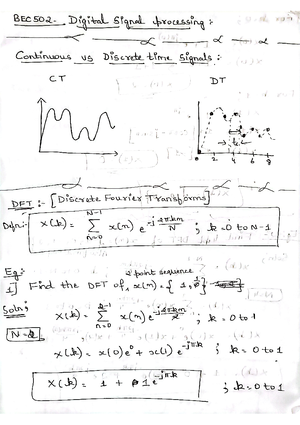 BEC502 - Digital Signal processing :-
Continuous vs Discrete time signals :-
CT DT
0 2 4 6 8
DFT :- [Discrete Fourier Transforms]
Defn:- X(k) = N-1 Σ n=0 x(n) e^-j2πkn/N ; k=0 to N-1
Eg:-
2 point sequence
1] Find the DFT of x(n) = { 1, }
Soln:
X(k) = Σ n=0 x(n) e ; k=0 to 1
X(k) = x(0) e^0 + x(1) e^-jπk ; k=0 to 1
X(k) = 1 + 1 e^-jπk ; k=0 to 1